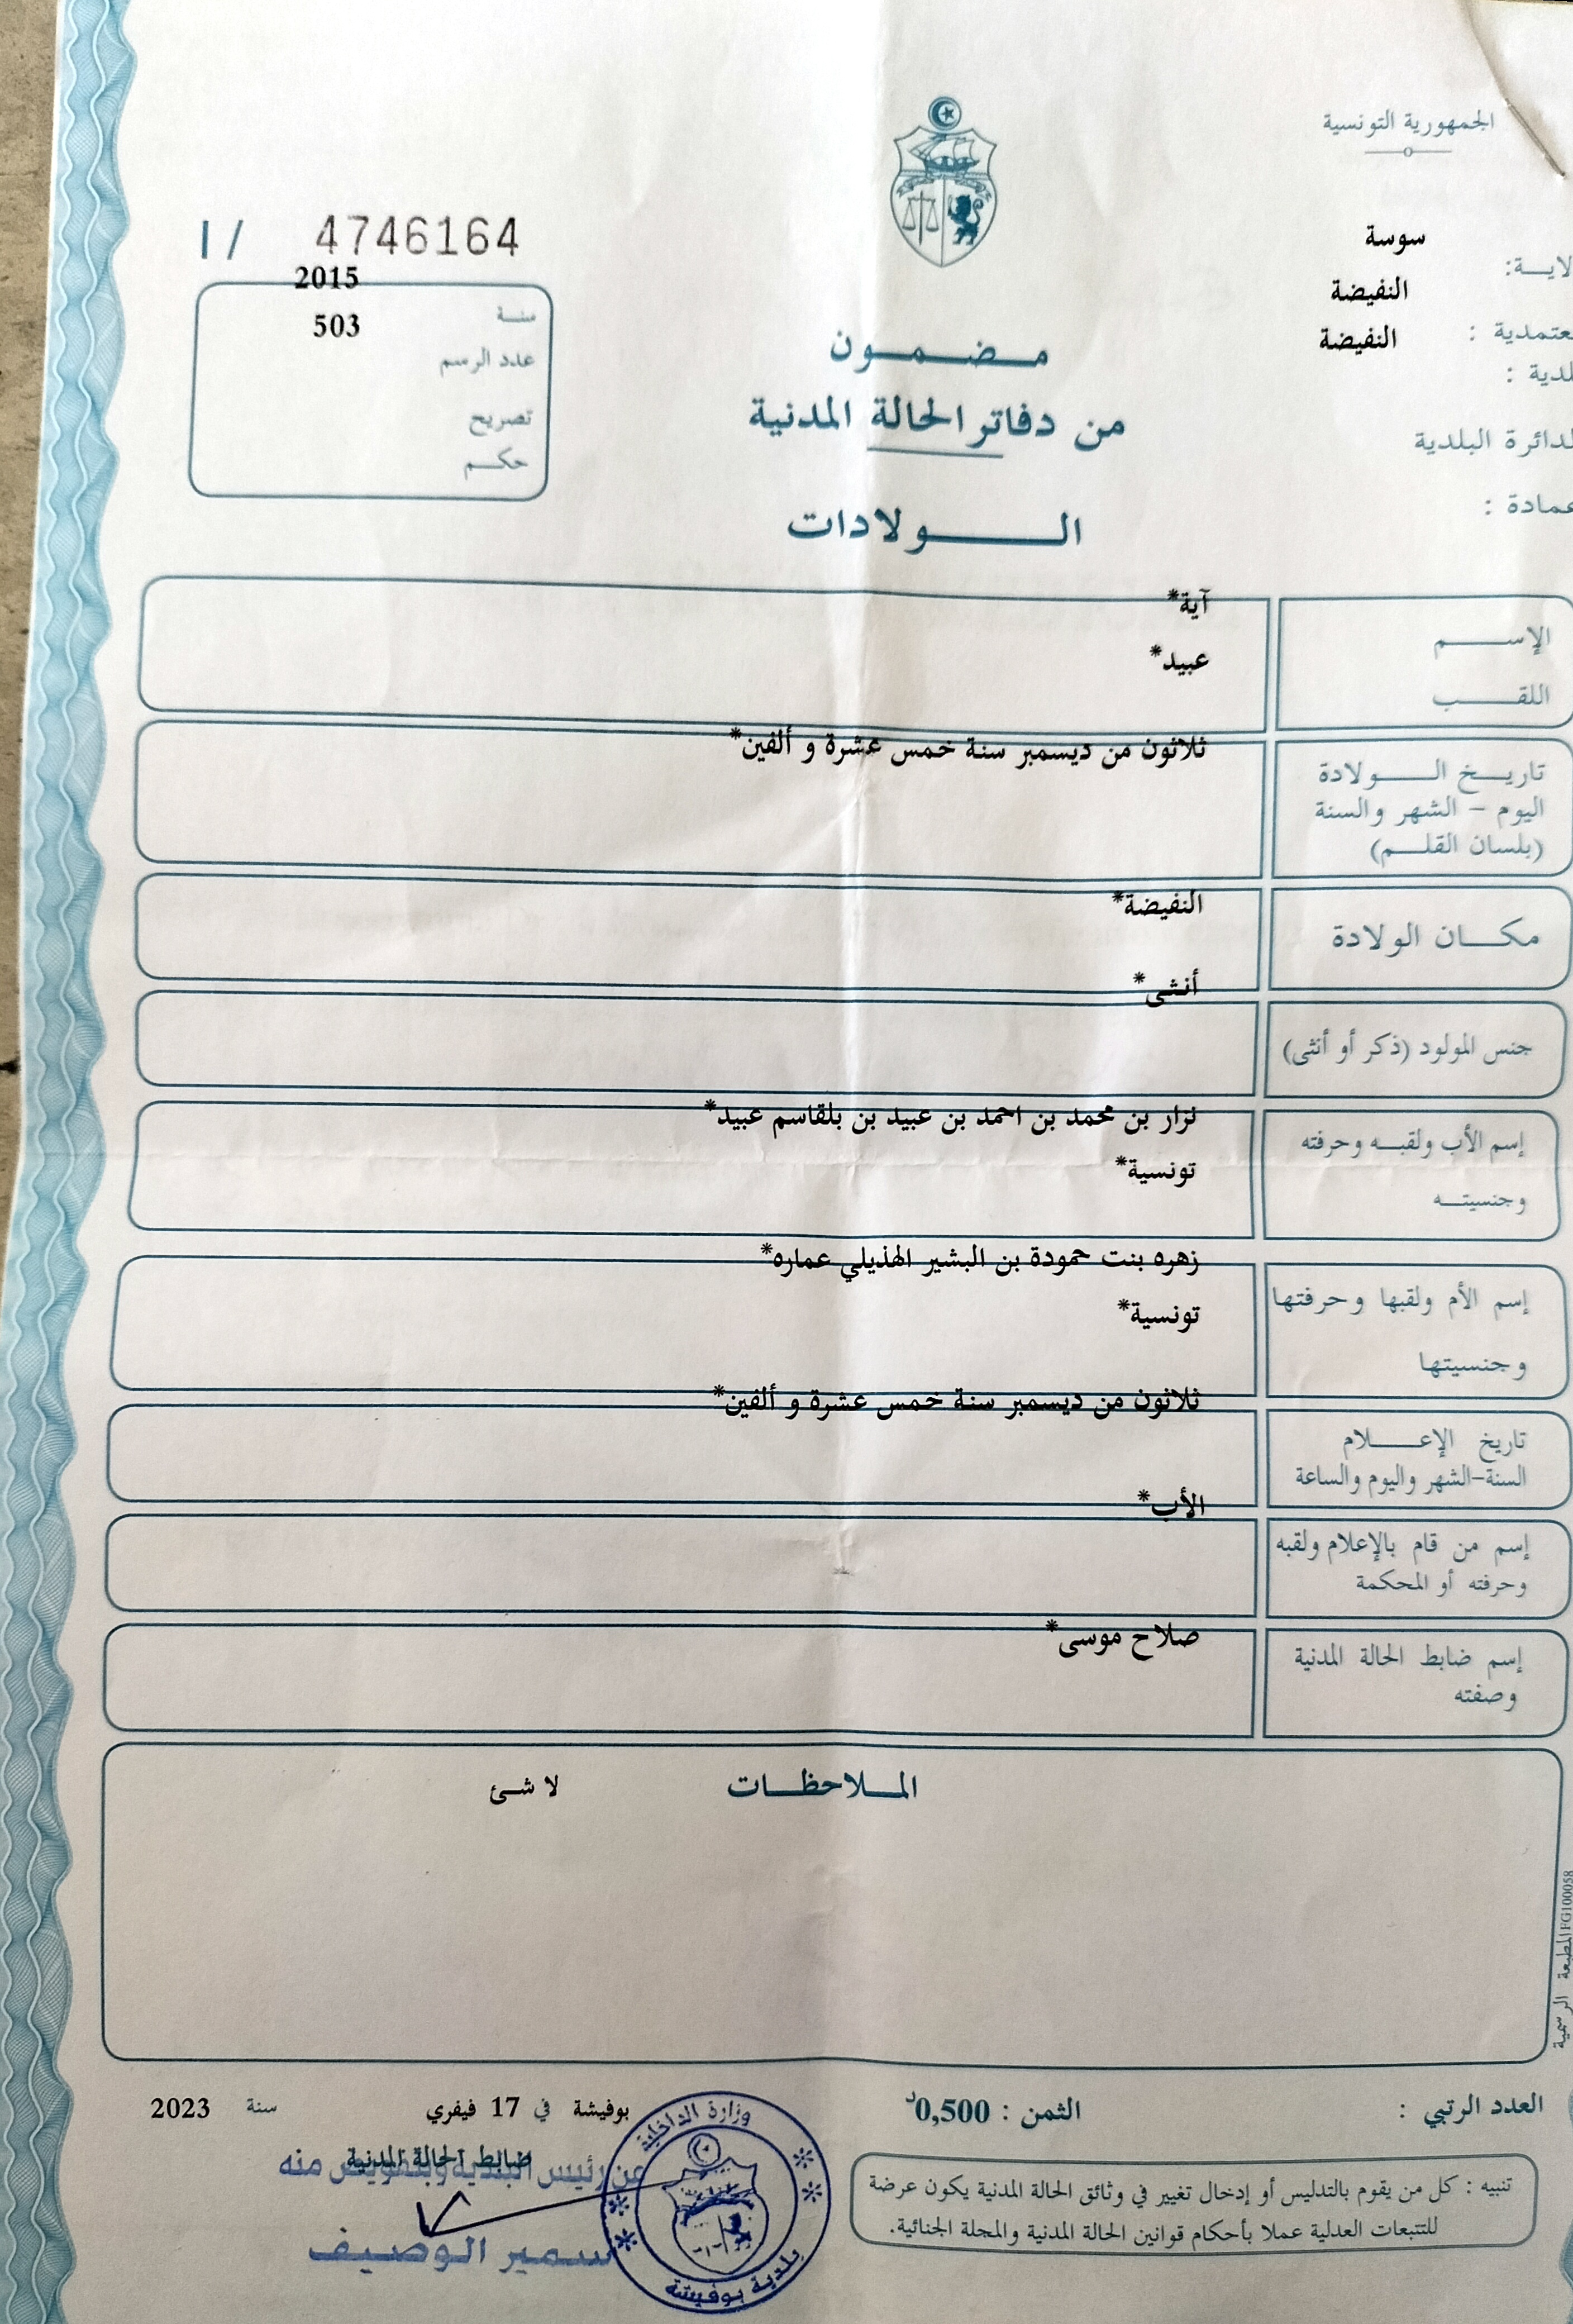 الجمهورية التونسية
سوسة
لايـــة:
النفيضة
عتمدية :
النفيضة
لدية :
لدائرة البلدية
عمادة :
I / 4746164
2015
سنــة
503
عدد الرسم
تصريح
حكــم
مــضــمــون
من دفاتر الحالة المدنية
الــــولادات
الإســــم
آية*
اللقــــب
عبيد*
تاريــخ الــــولادة
اليوم - الشهر والسنة
(بلسان القلــم)
ثلاثون من ديسمبر سنة خمس عشرة و ألفين*
مكــان الولادة
النفيضة*
جنس المولود (ذكر أو أنثى)
أنثى*
إسم الأب ولقبــه وحرفته
وجنسيتــه
نزار بن محمد بن احمد بن عبيد بن بلقاسم عبيد*
تونسية*
إسم الأم ولقبها وحرفتها
وجنسيتها
زهره بنت حمودة بن البشير الهذيلي عماره*
تونسية*
تاريخ الإعــــلام
السنة-الشهر واليوم والساعة
ثلاثون من ديسمبر سنة خمس عشرة و ألفين*
إسم من قام بالإعلام ولقبه
وحرفته أو المحكمة
الأب*
إسم ضابط الحالة المدنية
وصفته
صلاح موسى*
المــلاحظــات
لا شئ
المطبعة الرسمية FG100058
العدد الرتبي :
الثمن : 0,500د
بوفيشة في 17 فيفري سنة 2023
ضابط الحالة المدنية
عن رئيس البلدية وبتفويض منه
سمير الوصيف
وزارة الداخلية
بلدية بوفيشة
تنبيه : كل من يقوم بالتدليس أو إدخال تغيير في وثائق الحالة المدنية يكون عرضة
للتتبعات العدلية عملا بأحكام قوانين الحالة المدنية والمجلة الجنائية.